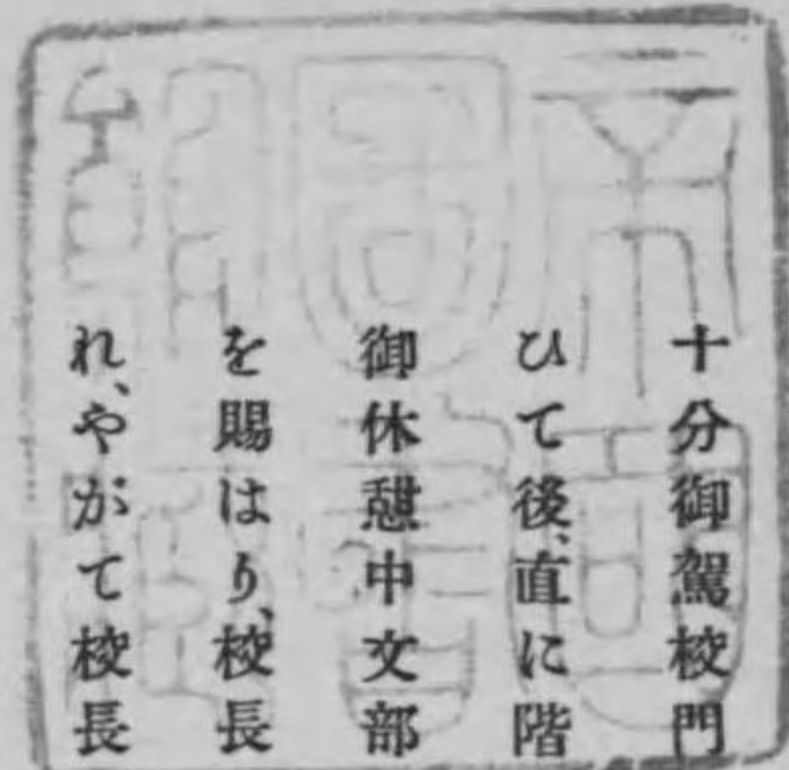 十分御駕校門
ひて後、直に階
御休憩中文部
を賜はり、校長
れ、やがて校長